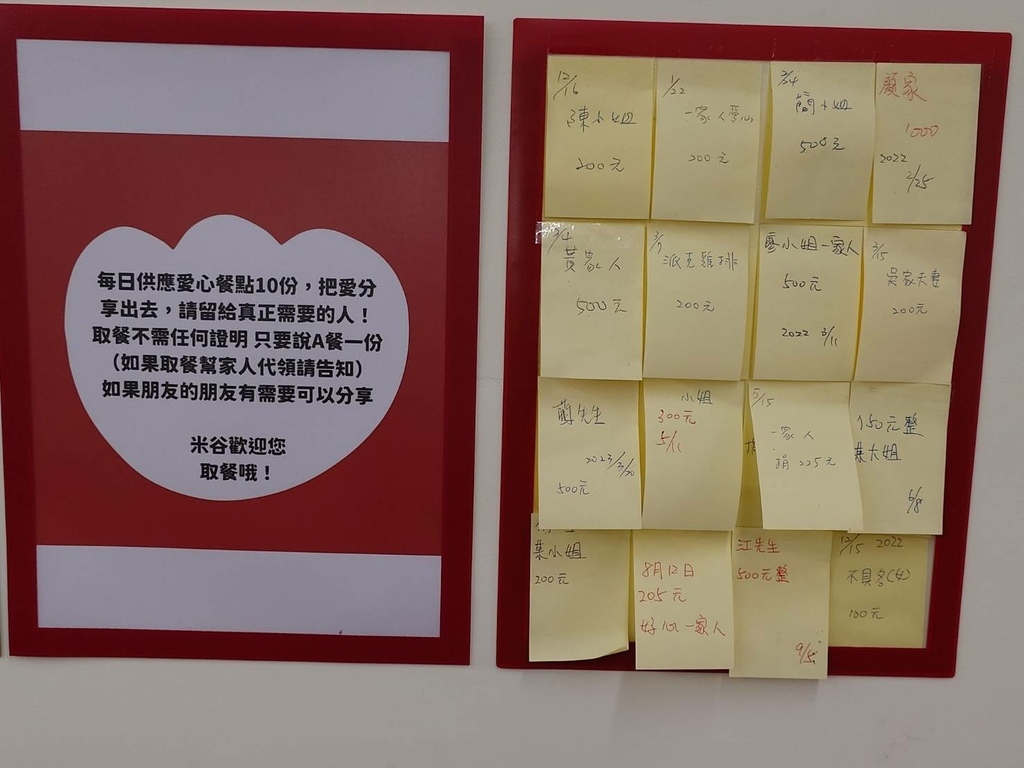 每日供應愛心餐點10份，把愛分
享出去，請留給真正需要的人！
取餐不需任何證明 只要說A餐一份
（如果取餐幫家人代領請告知）
如果朋友的朋友有需要可以分享
米谷歡迎您
取餐哦！
12/16
陳小姐
200元
1/22
一家人愛心
200元
2/24
蘭小姐
500元
顏家
1000
2022
2/25
3/4
黃家人
500元
3/9
派克雞排
200元
廖小姐一家人
500元
2022 3/11
3/15
吳家夫妻
200元
先生
2023/3/20
500元
小姐
300元
5/11
5/15
一家人
捐 225元
150元整
大姐
6/8
葉小姐
200元
8月12日
205元
好心一家人
江先生
500元整
9/5
12/15 2022
不具名(女)
100元